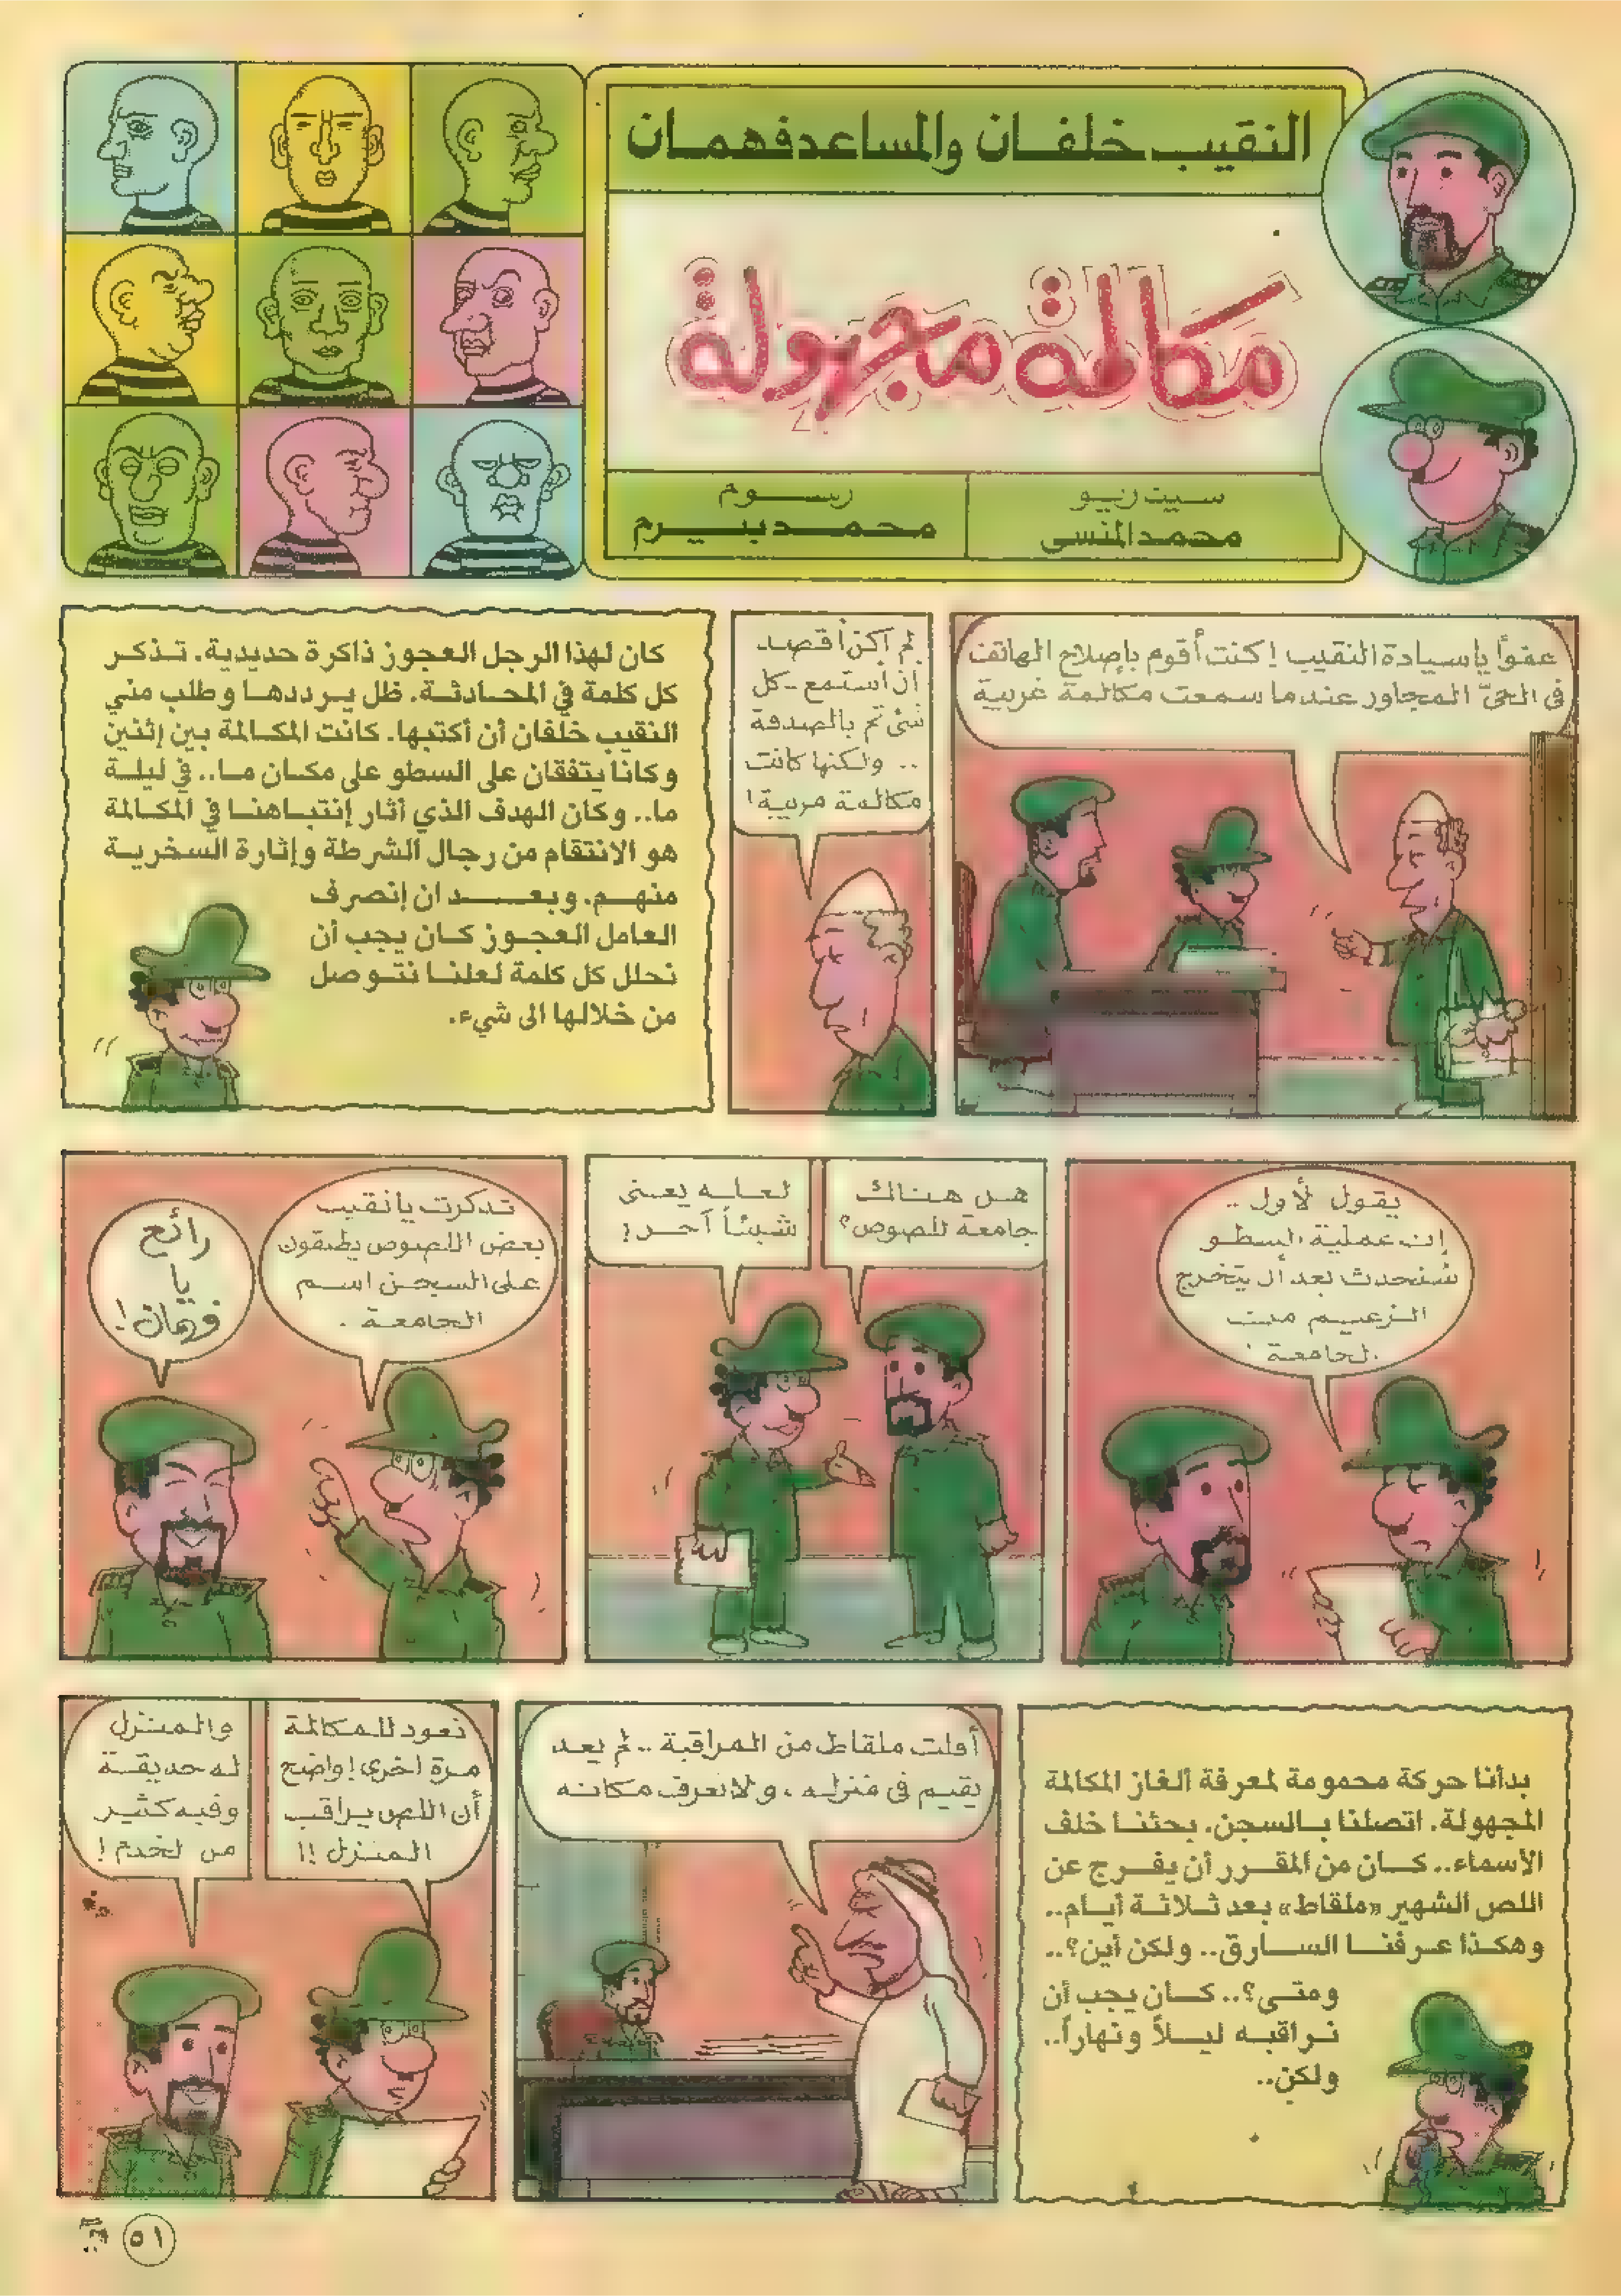 النقيب خلفان والمساعد فهمان
مكالمة مجهولة
سيناريو
محمد المنسى
رسوم
محمد بيرم
عفواً ياسيادة النقيب! كنت أقوم بإصلاح الهاتف
فى الحىّ المجاور عندما سمعت مكالمة غريبة
لم أكن أقصد
أن أستمع - كل
شئ تم بالصدفة
.. ولكنها كانت
مكالمة مريبة!
كان لهذا الرجل العجوز ذاكرة حديدية. تذكر
كل كلمة في المحادثة. ظل يرددها وطلب مني
النقيب خلفان أن أكتبها. كانت المكالمة بين إثنين
وكانا يتفقان على السطو على مكان ما.. في ليلة
ما.. وكان الهدف الذي أثار إنتباهنا في المكالمة
هو الانتقام من رجال الشرطة وإثارة السخرية
منهم. وبعد ان إنصرف
العامل العجوز كان يجب أن
نحلل كل كلمة لعلنا نتوصل
من خلالها الى شيء.
يقول الأول ..
إن عملية السطو
ستحدث بعد أن يتخرج
الزعيم من
الجامعة .
هل هناك
جامعة للصوص؟
لعله يعنى
شيئاً آخر!
تذكرت يا نقيب
بعض اللصوص يطلقون
على السجن اسم
الجامعة .
رائع
يا
فهمان!
بدأنا حركة محمومة لمعرفة ألغاز المكالمة
المجهولة. اتصلنا بالسجن. بحثنا خلف
الأسماء.. كان من المقرر أن يفرج عن
اللص الشهير «ملقاط» بعد ثلاثة أيام..
وهكذا عرفنا السارق.. ولكن أين؟..
ومتى؟.. كان يجب أن
نراقبه ليلاً ونهاراً..
ولكن..
أفلت ملقاط من المراقبة .. لم يعد
يقيم فى منزله ، ولا نعرف مكانه
نعود للمكالمة
مرة أخرى! واضح
أن اللص يراقب
المنزل !!
والمنزل
له حديقة
وفيه كثير
من الخدم !
٥١